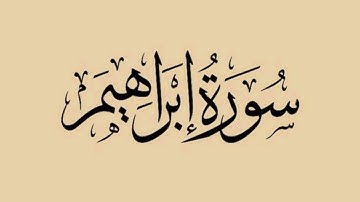 سُورَةُ إِبْرَاهِيمَ